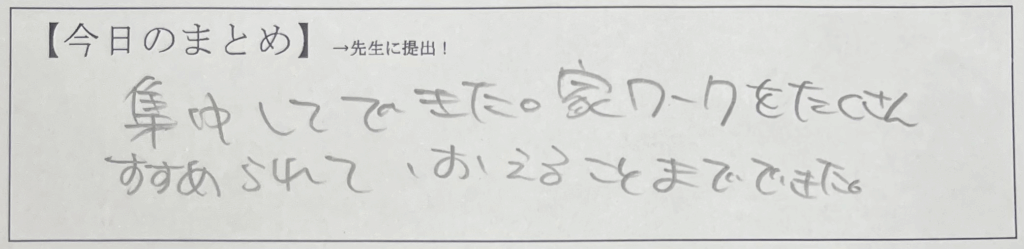 【今日のまとめ】 →先生に提出！
集中してできた。家ワークをたくさん
すすめられて、おえることまでできた。